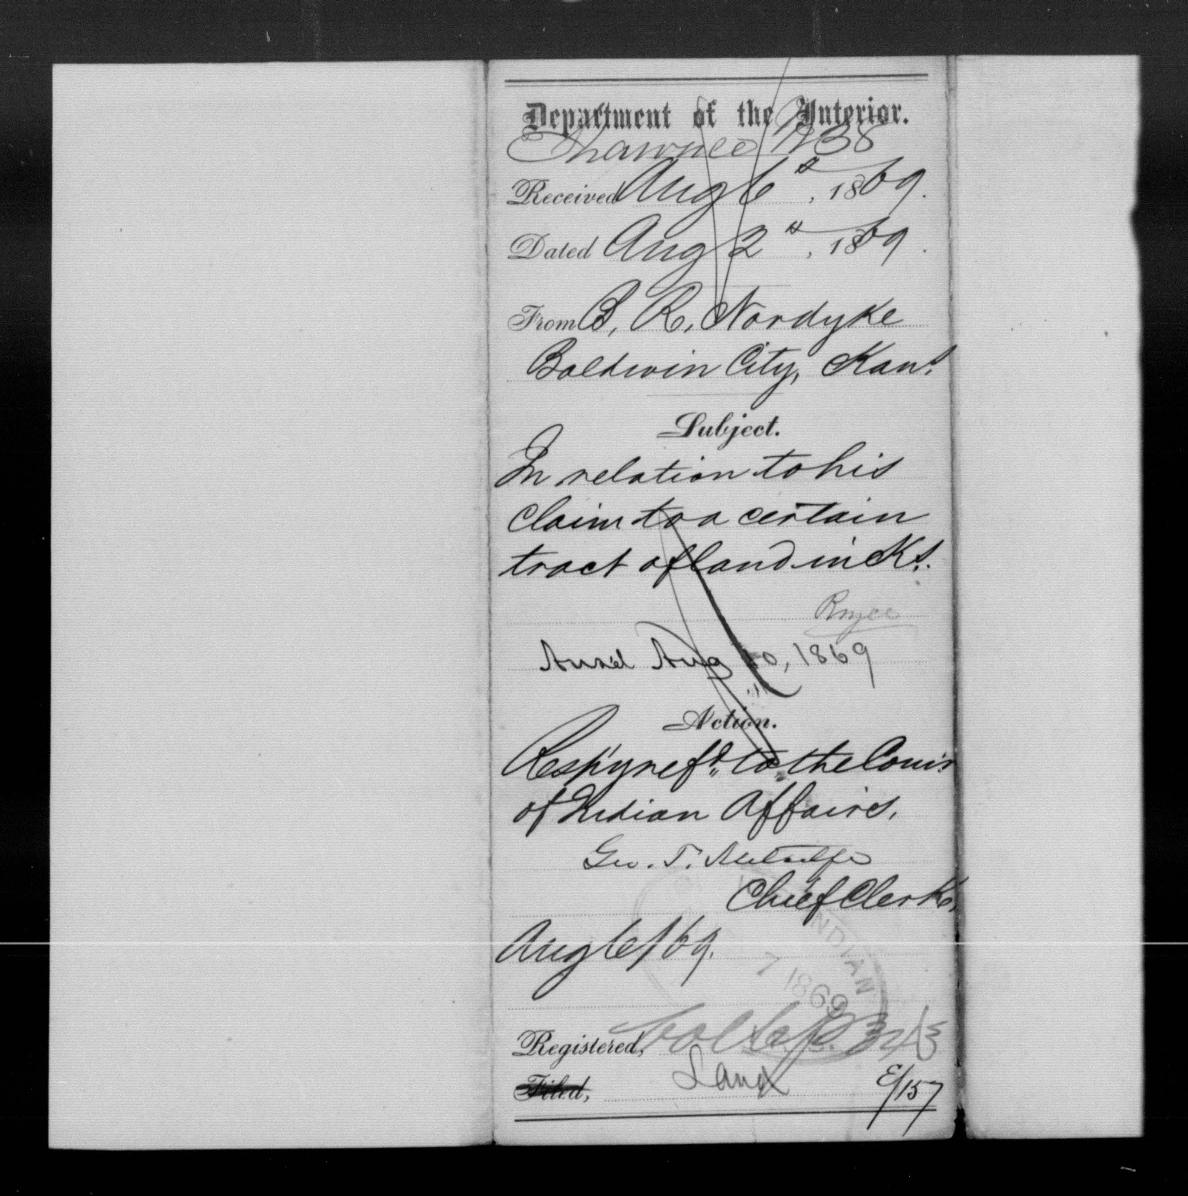 Department of the Interior.
Shawnee N38
Received Aug 6", 1869.
Dated Aug 2", 1869.
From B, R, Nordyke
Baldwin City, Kans.
Subject.
In relation to his
claim to a certain
tract of land in Ks.
Royce
Ansd Aug 10, 1869
Action.
Resp'y refd to the Comr
of Indian Affairs.
Geo. T. Metcalfe
Chief Clerk.
Aug 6/69.
INDIAN
7 1869
Registered,
Filed, Land
E/157